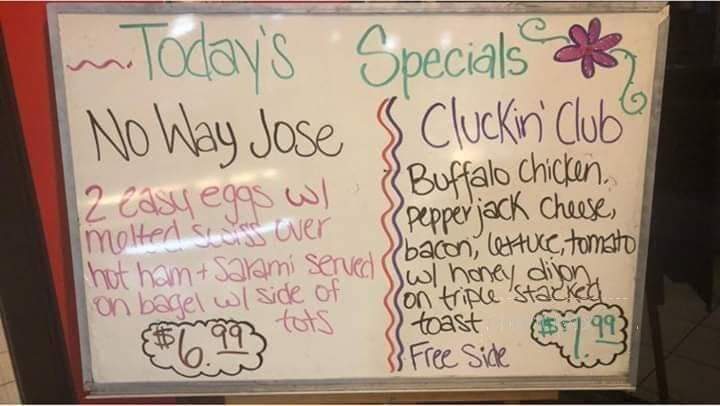 Today's Specials
No Way Jose
2 easy eggs w/
melted swiss over
hot ham + Salami served
on bagel w/ side of
tots
$6.99
Cluckin' Club
Buffalo chicken,
pepper jack cheese,
bacon, lettuce, tomato
w/ honey dijon
on triple stacked
toast
Free Side
99